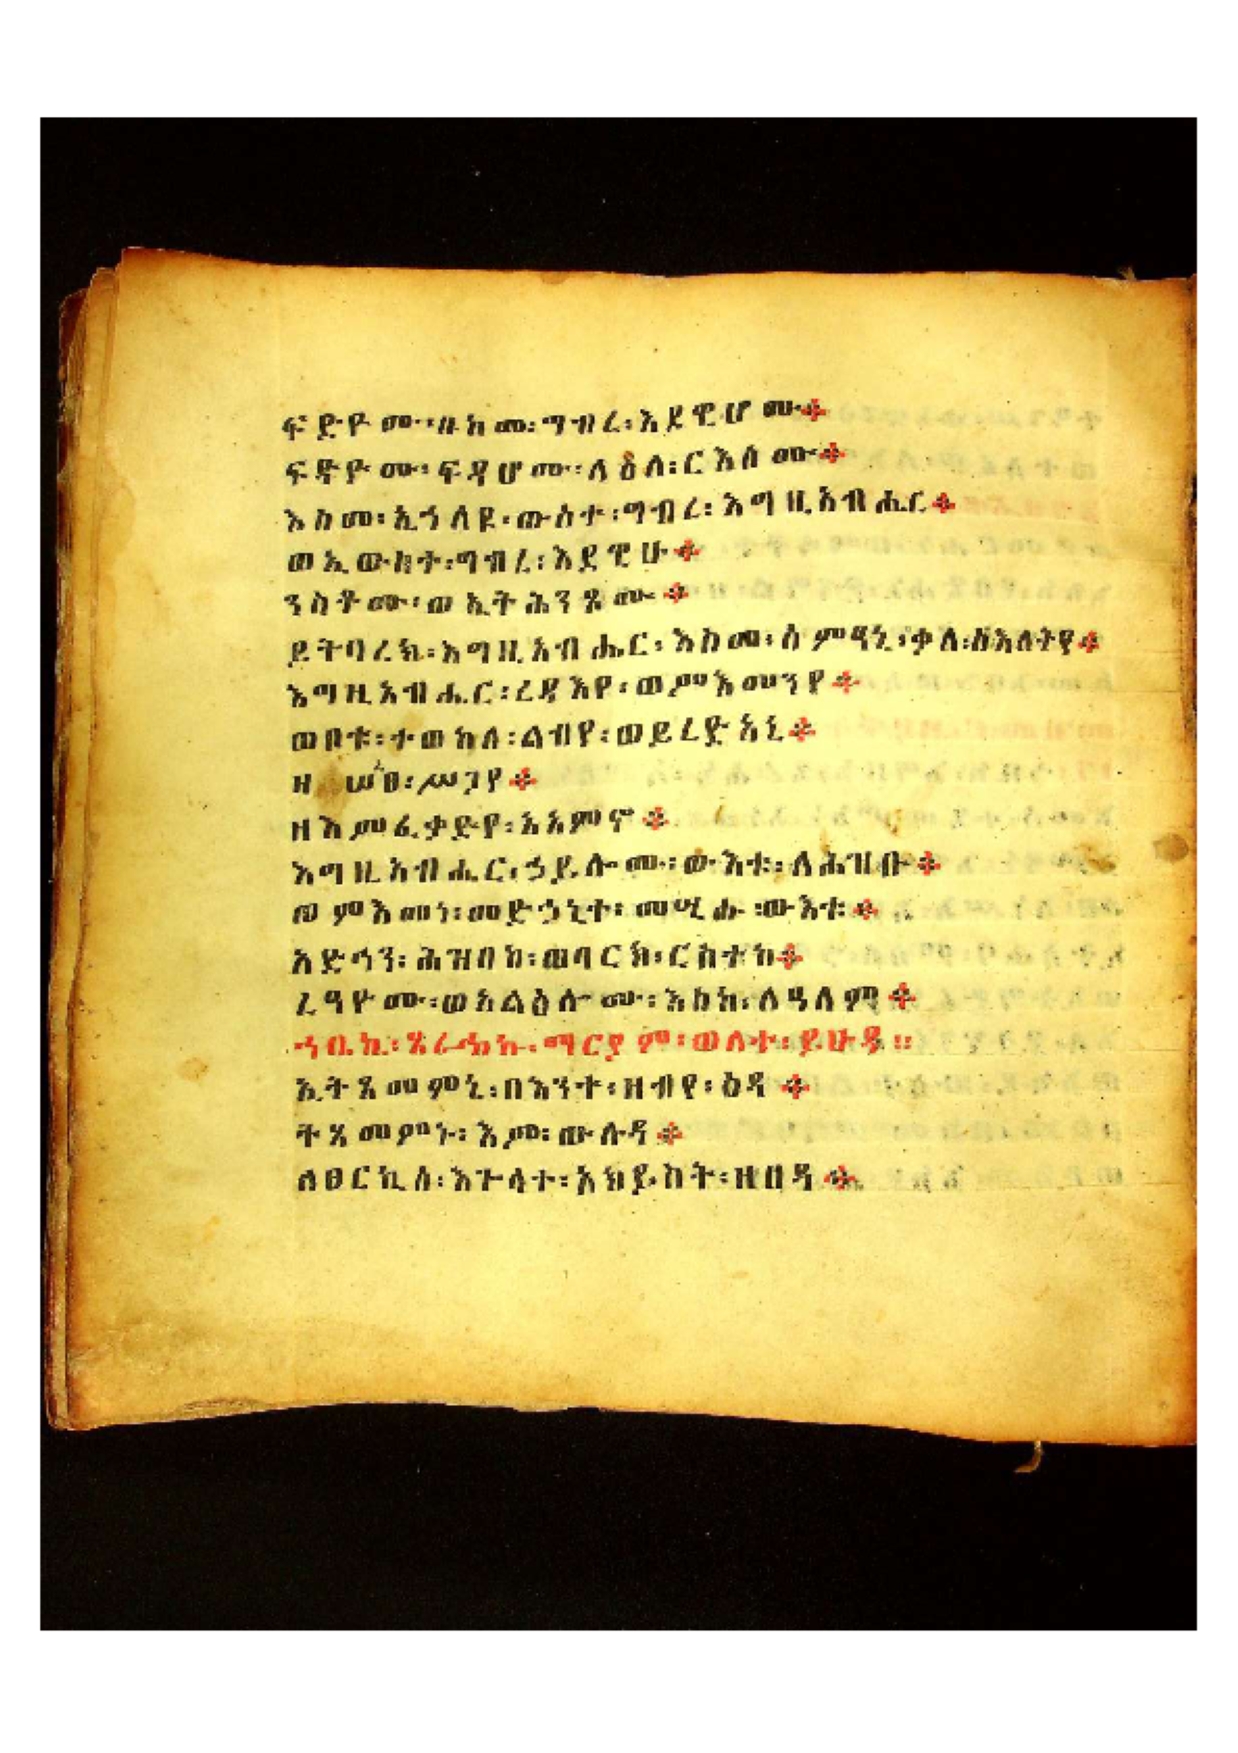 ፍድዮሙ፡በከመ፡ግብረ፡እደዊሆሙ፨
ፍድዮሙ፡ፍዳሆሙ፡ለዕለ፡ርእሰሙ፨
እስመ፡ኢኀለዩ፡ውስተ፡ግብረ፡እግዚአብሔር፨
ወኢውስተ፡ግብረ፡እደዊሁ፨
ንስቶሙ፡ወኢትሕንጾሙ፨
ይትባረክ፡እግዚአብሔር፡እስመ፡ሰምዓኒ፡ቃለ፡ስእለትየ፨
እግዚአብሔር፡ረዳእየ፡ወምእመንየ፨
ወቦቱ፡ተወከለ፡ልብየ፡ወይረድአኒ፨
ዘ ሠፀ፡ሥጋየ፨
ዘእምፈቃድየ፡አአምኖ፨
እግዚአብሔር፡ኃይሎሙ፡ውእቱ፡ለሕዝቡ፨
ወምእመነ፡መድኃኒተ፡መሢሑ፡ውእቱ፨
አድኅን፡ሕዝበከ፡ወባርክ፡ርስተከ፨
ረዓዮሙ፡ወአልዕሎሙ፡እስከ፡ለዓለም፨
ኀቤኪ፡ጼራኩኩ፡ማርያም፡ወለተ፡ይሁዳ፡፡
ኢትጼመምኒ፡በእንተ፡ዘብየ፡ዕዳ፨
ትጼመምኑ፡እም፡ውሉዳ፨
ለፀርኪሰ፡እጉላተ፡አክይስት፡ዘበዳ፨